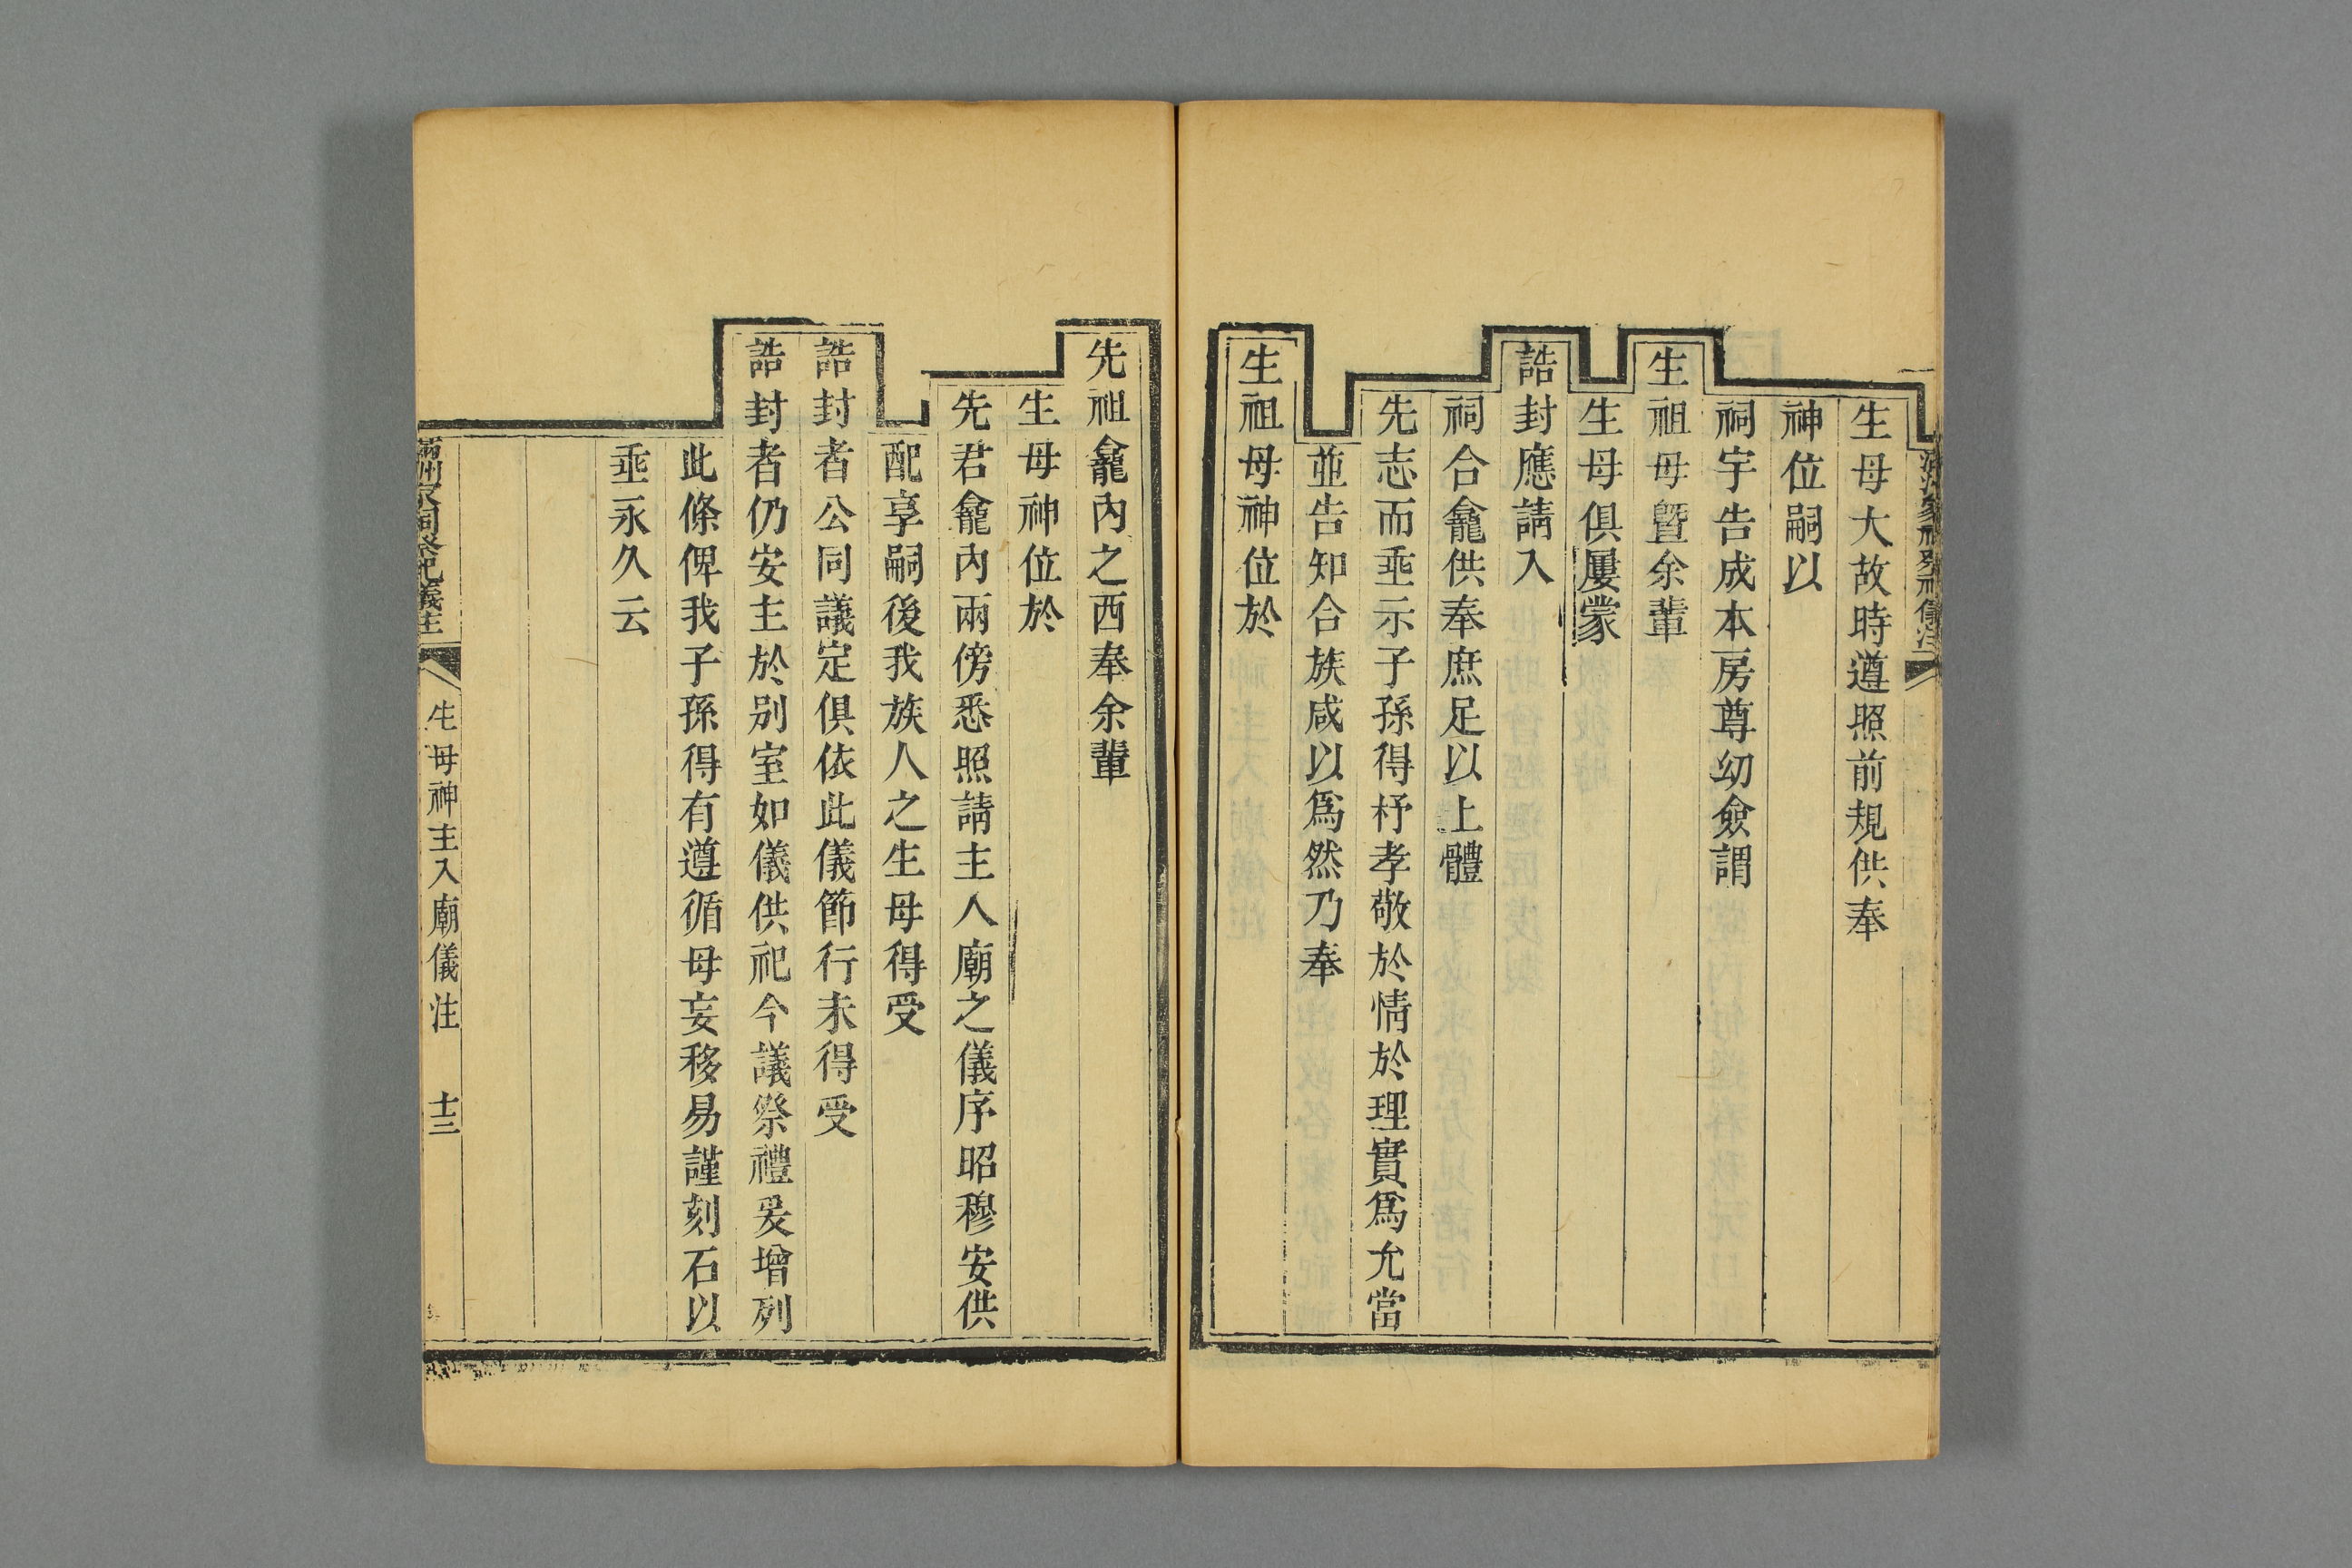 生母大故時遵照前規供奉
神位嗣以
祠宇告成本房尊幼僉謂
生祖母曁余輩
生母俱屢蒙
誥封應請入
祠合龕供奉庶足以上體
先志而垂示子孫得杼孝敬於情於理實爲允當
並告知合族咸以爲然乃奉
生祖母神位於
先祖龕內之西奉余輩
生母神位於
先君龕內兩傍悉照請主入廟之儀序昭穆安供
配享嗣後我族人之生母得受
誥封者公同議定俱依此儀節行未得受
誥封者仍安主於別室如儀供祀今議祭禮爰增列
此條俾我子孫得有遵循毋妄移易謹刻石以
垂永久云
滿洲家祠祭祀儀注
生母神主入廟儀注
十三